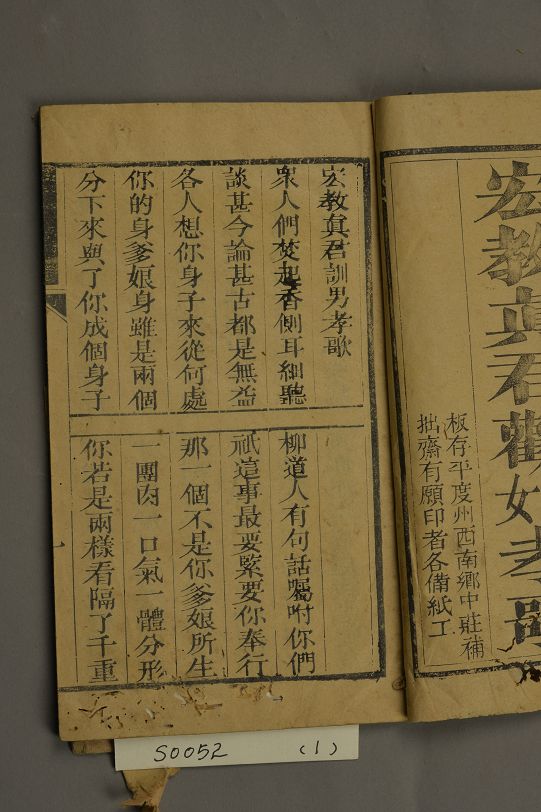 宏教真君勸女孝歌
板存平度州西南鄉中莊補
拙齋有願印者各備紙工
宏教真君訓男孝歌
衆人們焚起香側耳細聽
柳道人有句話囑咐你們
談甚今論甚古都是無益
祇這事最要緊要你奉行
各人想你身子來從何處
那一個不是你爹娘所生
你的身爹娘身雖是兩個
一團肉一口氣一體分形
分下來與了你成個身子
你若是兩樣看隔了千重
一
S0052 (1)